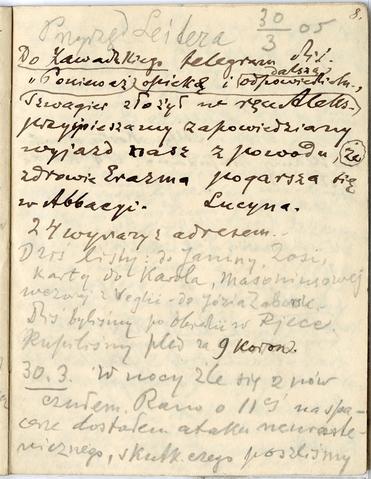 8.
30/3 05
Przyrząd Leitera
Do Zawadzkiego telegram
„Ponieważ opiekę i dalszą odpowiedzialn.
Szwagier złożył w ręce Aleks.
przyspieszamy zapowiedziany
wyjazd nasz z powodu że
zdrowie Erazma pogarsza się
w Abbacyi. Lucyna.
24 wyrazy z adresem.
Dziś listy: do Janiny, Zosi,
Karty do Karola,
z Veglii do Józia
Dziś byliśmy po obiedzie w Rjece
Kupiliśmy pled za 9 Koron.
30.3. W nocy źle się znów
czułem. Rano o 11ej na spa-
cerze dostałem ataku neuraste-
nicznego, skutk. czego poszliśmy